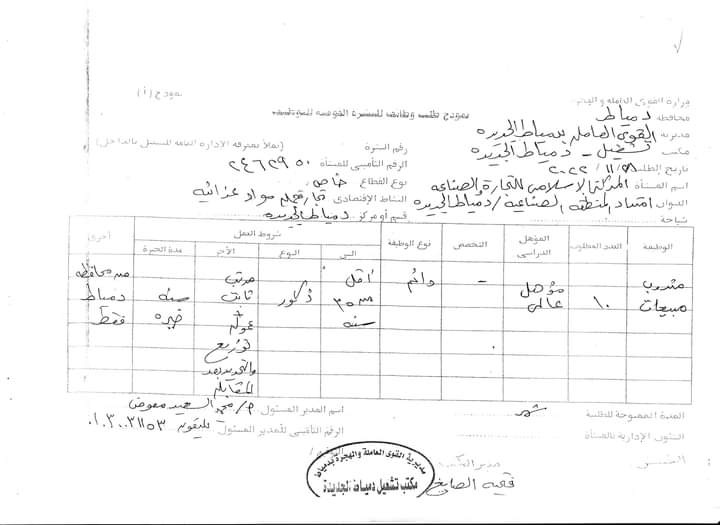 نموذج (١)
وزارة القوى العاملة والهجرة
محافظة دمياط
نموذج طلب وظائف للنشرة القومية للتوظيف
مديرية القوى العاملة بدمياط الجديدة
مكتب تشغيل - دمياط الجديدة
رقم النشرة (يملأ بمعرفة الادارة العامة للتشغيل بالداخل)
تاريخ الطلب ٢٠٢٢/١١/
الرقم التأمينى للمنشأة ٢٤٦٢٩٥٠
اسم المنشأة المركز الاسلامى للتجارة والصناعة
نوع القطاع خاص
العنوان امتداد المنطقة الصناعية / دمياط الجديدة
النشاط الإقتصادى تجارة مواد غذائية
شياخة
قسم أو مركز دمياط الجديدة
الوظيفة
العدد المطلوب
المؤهل الدراسى
التخصص
نوع الوظيفة
شروط العمل
السن
النوع
الأجر
مدة الخبرة
أخرى
مندوب مبيعات
١٠
مؤهل عالى
-
دائم
أقل من ٣٥ سنة
ذكور
مرتب ثابت + عمولة توزيع والتحديد بعد المقابلة
سنة خبرة
من محافظة دمياط فقط
المدة الممنوحة للطلبية شهر
اسم المدير المسئول / محمد السعيد معوض
الشئون الإدارية بالمنشأة
الرقم التأمينى للمدير المسئول تليفون
المختص
مدير المكتب
فهيه الصايغ
مديرية القوى العاملة والهجرة بدمياط
مكتب تشغيل دمياط الجديدة